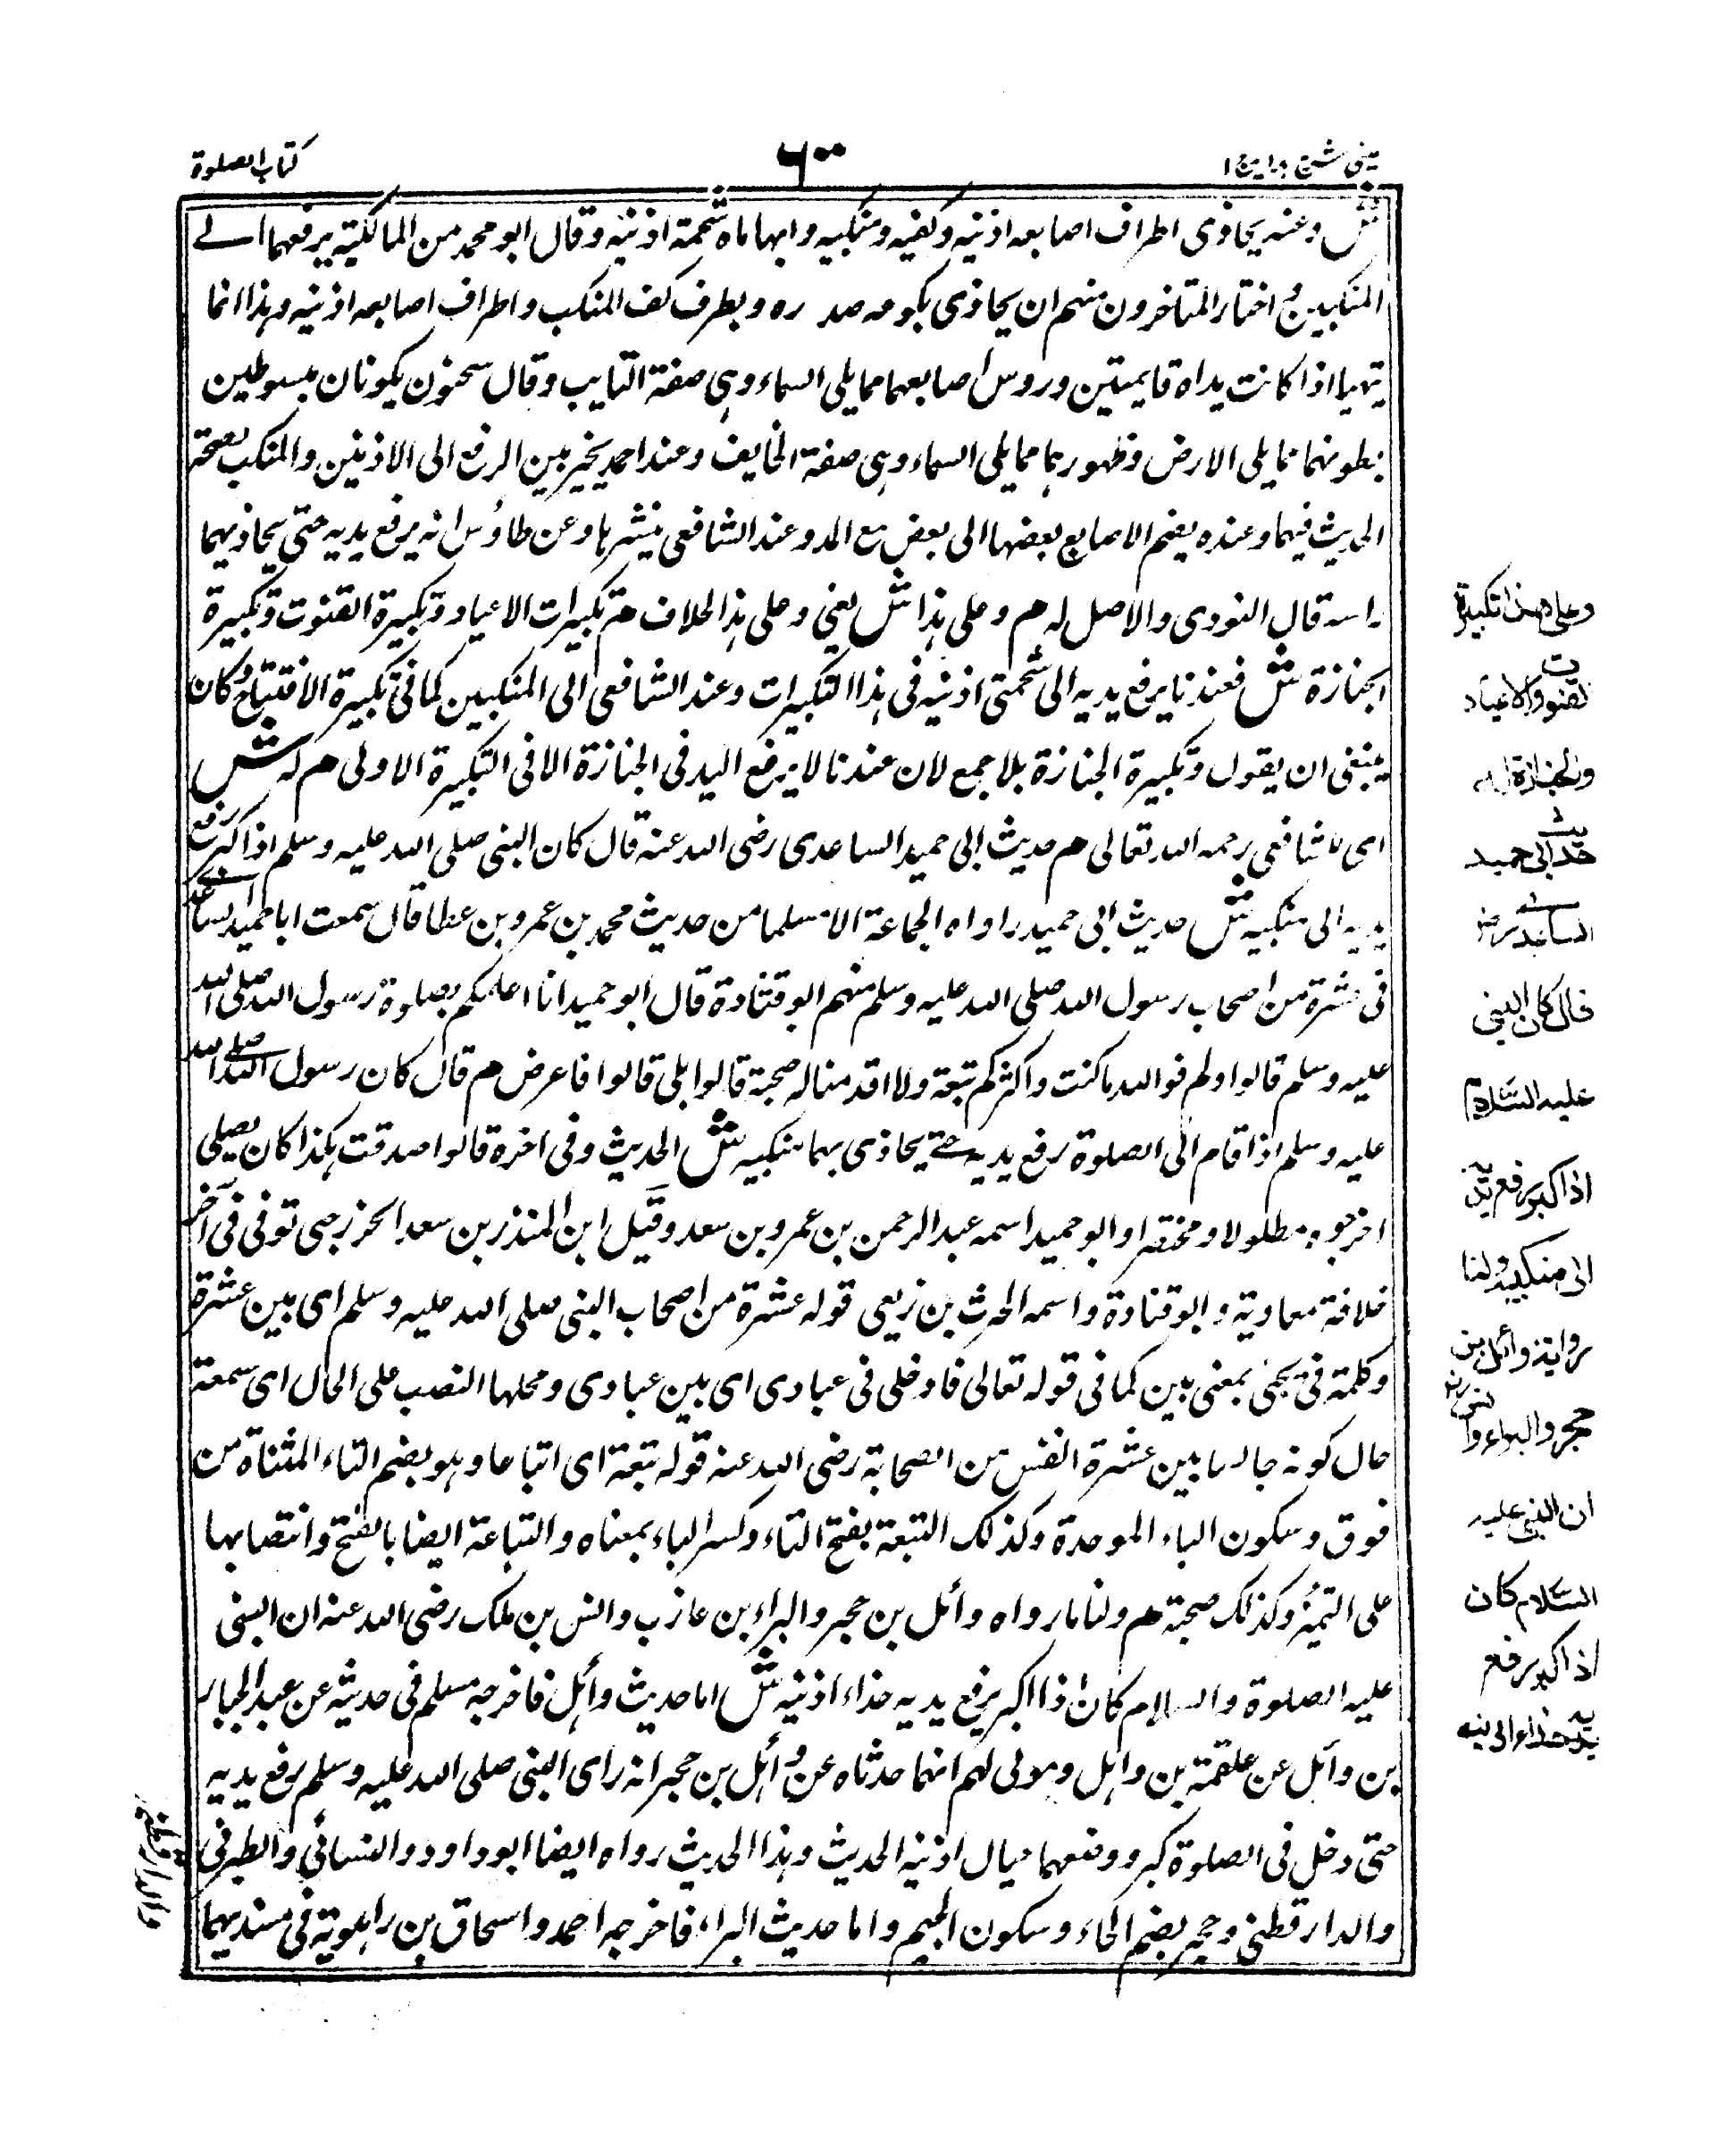 عینی شرح ہدایہ ج ۱
۶۰۰
کتاب الصلوة
ش وعنه يحاذى اطراف اصابعه اذنيه وكفيه ومنكبيه وابهاماه شحمة اذنيه وقال ابو محمد من المالكية يرفعهما الے
المنكبين واختار المتاخرون منهم ان يحاذى بكوعه صدره وبطرف كف المنكب واطراف اصابعه اذنيه وهذا انما
يتهيا اذا كانت يداه قايمتين وروس اصابعهما مما يلى السماء وهى صفة التايب وقال سحنون يكونان مبسوطين
بطونهما مما يلى الارض وظهورهما مما يلى السماء وهى صفة الخايف وعند احمد يخير بين الرفع الى الاذنين والمنكب لصحة
الحديث فيهما وعنده يضم الاصابع بعضها الى بعض مع المد وعند الشافعى ينشرها وعن طاؤس انه يرفع يديه حتى يحاذيهما
راسه قال النووى والاصل له م وعلى هذا ش يعنى وعلى هذا الخلاف م تكبيرات الاعياد وتكبيرة القنوت وتكبيرة
الجنازة ش فعندنا يرفع يديه الى شحمتى اذنيه فى هذا التكبيرات وعند الشافعى الى المنكبين كما فى تكبيرة الافتتاح وكان
ينبغى ان يقول وتكبيرة الجنازة بلا جمع لان عندنا لا يرفع اليد فى الجنازة الا فى التكبيرة الاولى م له ش
اى للشافعى رحمه الله تعالى م حديث ابى حميد الساعدى رضى الله عنه قال كان النبى صلى الله عليه وسلم اذا كبر رفع
يديه الى منكبيه ش حديث ابى حميد رواه الجماعة الا مسلما من حديث محمد بن عمرو بن عطا قال سمعت ابا حميد الساعدے
فى عشرة من اصحاب رسول الله صلى الله عليه وسلم منهم ابو قتادة قال ابو حميد انا اعلمكم بصلوة رسول الله صلى الله
عليه وسلم قالوا ولم فوالله ما كنت واكثركم تبعة ولا اقدمنا له صحبة قالوا بلى قالوا فاعرض م قال كان رسول الله صلے الله
عليه وسلم اذا قام الى الصلوة رفع يديه حتے يحاذى بهما منكبيه ش الحديث وفى اخره قالوا صدقت هكذا كان يصلى
اخرجوه مطلولا ومختصرا وابو حميد اسمه عبد الرحمن بن عمرو بن سعد وقيل ابن المنذر بن سعد الخزرجى توفى فى آخر
خلافة معاوية وابو قتادة واسمه الحرث بن ربعى قوله عشرة من اصحاب النبى صلى الله عليه وسلم اى بين عشرة
وكلمة فى تجئ بمعنى بين كما فى قوله تعالى فادخلى فى عبادى اى بين عبادى ومحلها النصب على الحال اى سمعة
حال كونه جالسا بين عشرة انفس من الصحابة رضى الله عنه قوله تبعة اى اتباعا وهو بضم التاء المثناة من
فوق وسكون الباء الموحدة وكذلك التبعة بفتح التاء وكسر الباء بمعناه والتباعة ايضا بالفتح وانتصابها
على التميز وكذلك صحبة م ولنا ما رواه وائل بن حجر والبراء بن عازب وانس بن ملك رضى الله عنه ان النبى
عليه الصلوة والسلام كان اذا اكبر يرفع يديه حذاء اذنيه ش اما حديث وائل فاخرجه مسلم فى حديثه عن عبد الجبار
بن وائل عن علقمة بن وايل ومولى لهم انهما حدثاه عن وائل بن حجر انه راى النبى صلى الله عليه وسلم يرفع يديه
حتى دخل فى الصلوة كبر ووضعهما حيال اذنيه الحديث وهذا الحديث رواه ايضا ابو داود والنسائى والطبرفى
والدارقطنى وحجر بضم الحاء وسكون الجيم واما حديث البراء فاخرجه احمد واسحاق بن راهوية فى مسنديهما
وعلى هذا تكبيرة
القنوت والاعياد
والجنازة له
حديث ابى حميد
الساعدے رض
قال كان النبى
عليه السلام
اذا كبر رفع يديه
الى منكبيه ولنا
رواية وائل بن
حجر والبراء وانس رض
ان النبى عليه
السلام كان
اذا كبر رفع
يديه حذاء اذنيه